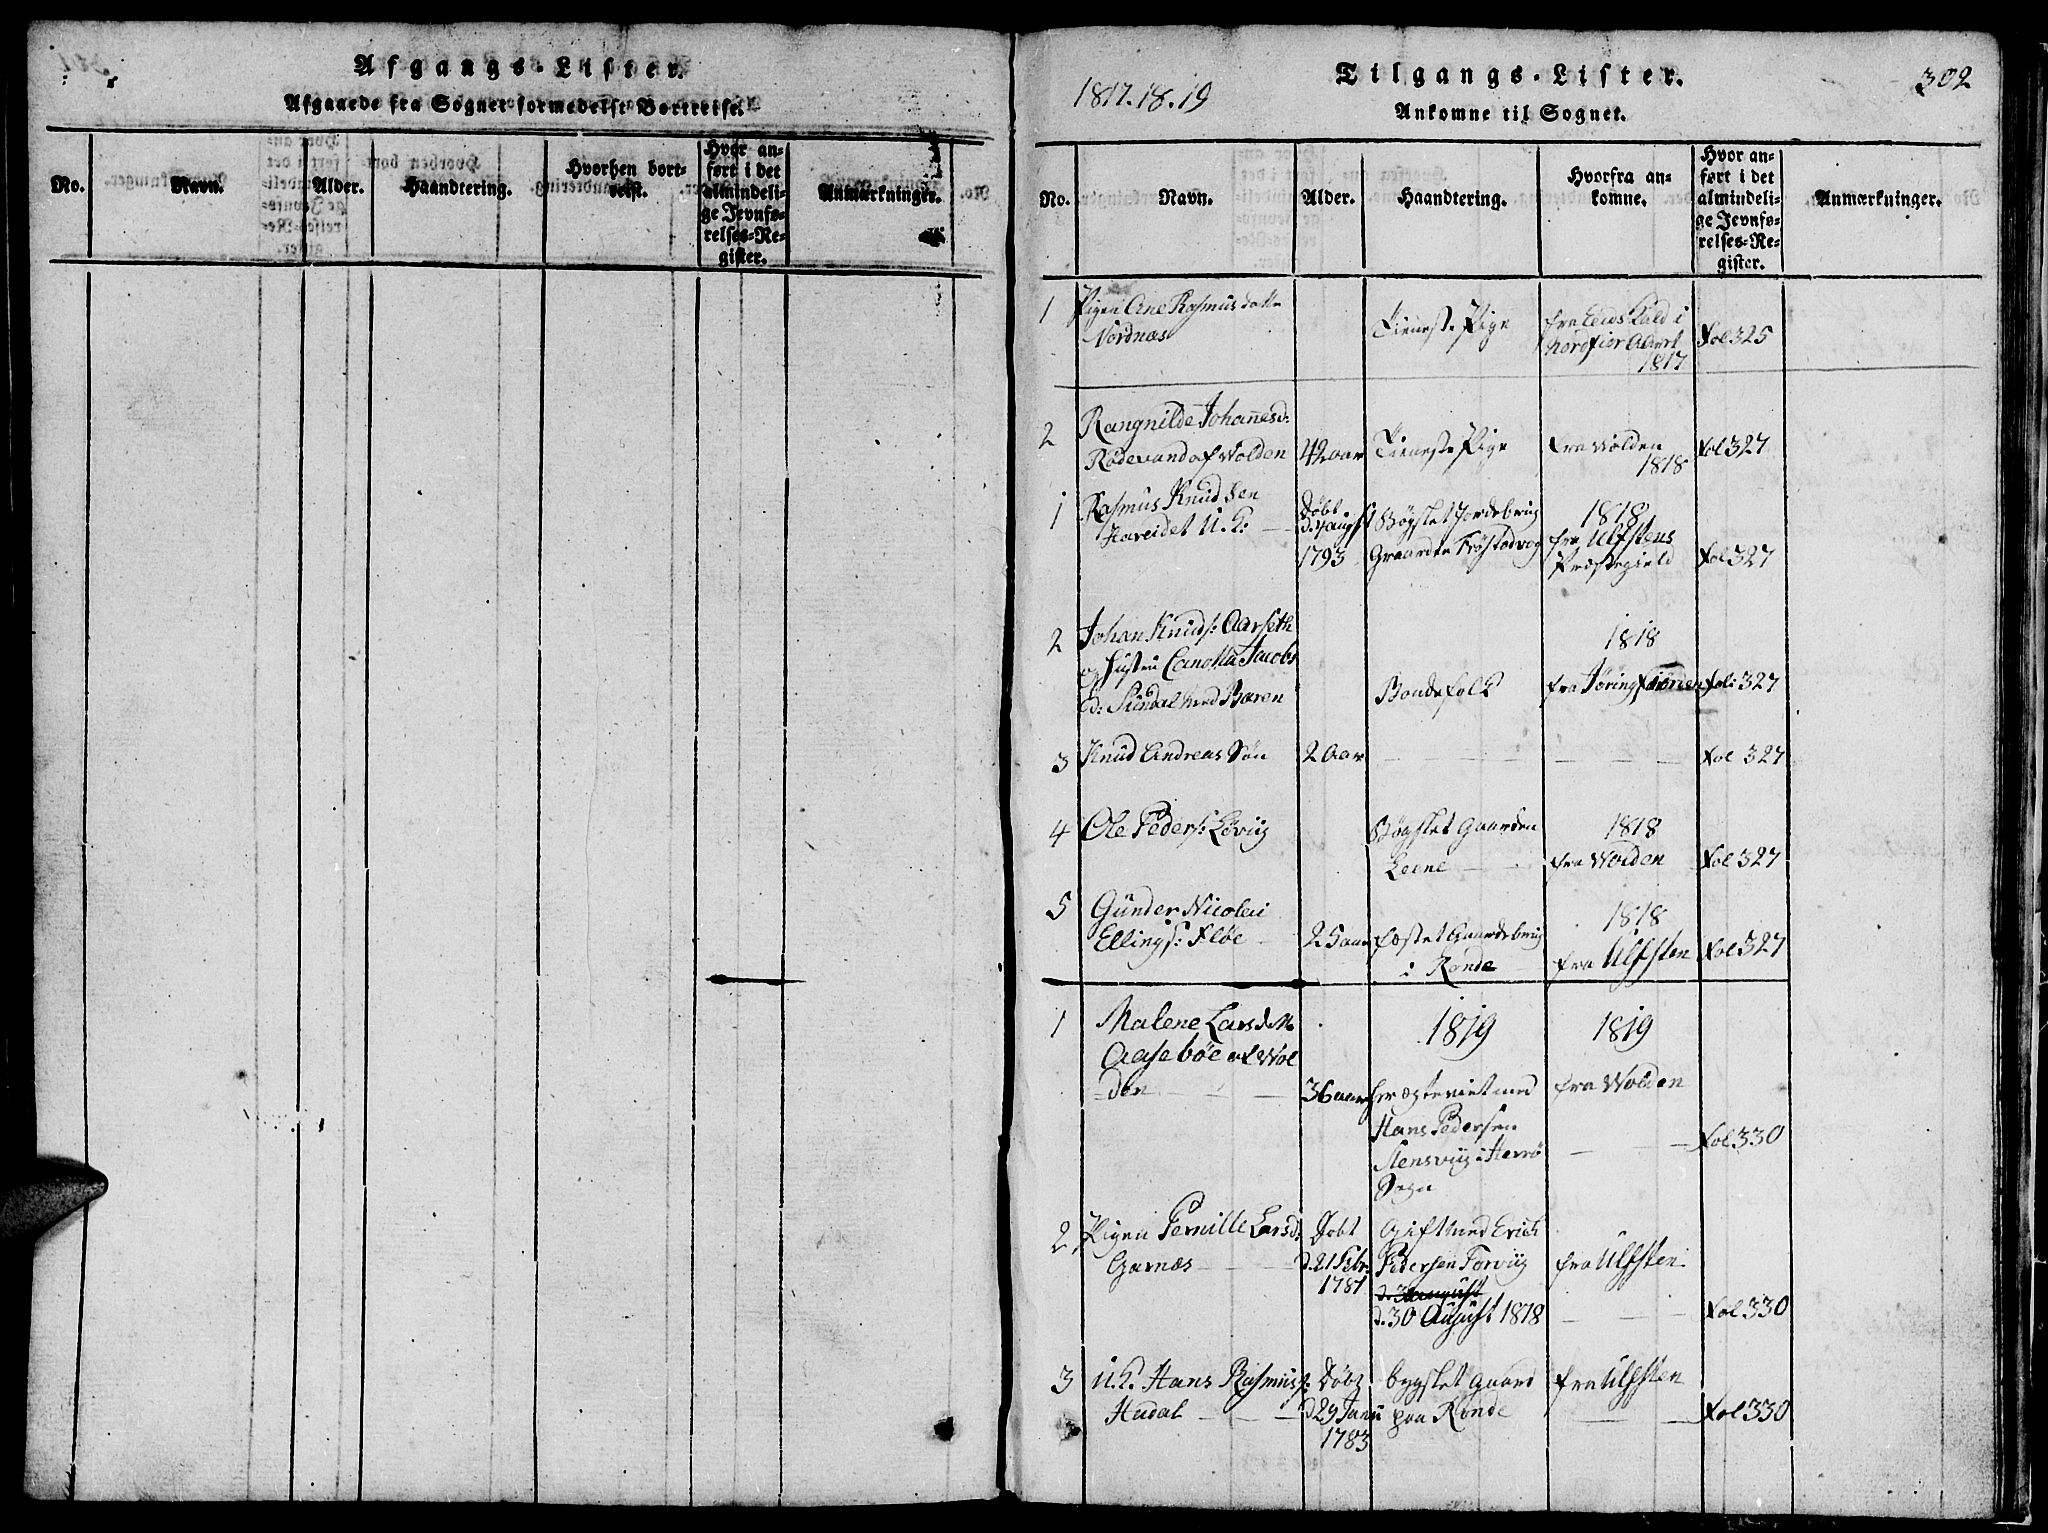 Afgangs-Lister.
Afgaaede fra Sognet formedelst Bortreise.
No.
Navn.
Alder.
Haandtering.
Hvorhen bort-
reist.
Hvor an-
ført i det
almindeli-
ge Jevnfø-
relses-Re-
gister.
Anmærkninger.
1817.18.19
Tilgangs-Lister.
302
Ankomne til Sognet.
No.
Navn.
Alder.
Haandtering.
Hvorfra an-
komne.
Hvor an-
ført i det
almindeli-
ge Jevnfø-
relses-Re-
gister.
Anmærkninger.
1 Pigen Ane Rasmusdatter
Nordnæs
Tieneste Pige
fra Eids Kald i
Nordfior
1817
Fol 325
2 Rangnilde Johannesd:
Rødevand af Wolden
42 aar
Tieneste Pige
fra Wolden
1818
Fol 327
1 Rasmus Knudsen
Hareidet U. K:
Døbt
d. 4 augst
1793
Bøgslet Jordebrug
Gaarden Frøstadvog
1818
fra Ulfstens
Præstegield
Fol 327
2 Johan Knuds: Aarseth
og Hustru Canotta Jacobs
d: Sundal med Baren
Bondefolk
1818
fra Jøringfiorden
Fol: 327
3 Knud Andreas Søn
2 Aar
Fol 327
4 Ole Peders: Løviig
Bøgslet Gaarden
Leene
1818
fra Wolden
Fol 327
5 Gunder Nicolai
Ellings: Fløe
25 aar
fæstet Gaardebrug
i Rønde
1818
fra Ulfsten
Fol 327
1 Malene Larsdtr
Aasebøe af Wol
den
36 aar
1819
er ægteviet med
Hans Pedersen
Stensviig i Herrø
Sogn
1819
fra Wolden
Fol 330
2 Pigen Pernille Larsd:
Garnæs
Døbt
d. 21 Febr.
1781
Gift med Erich
Pedersen Torviig
d. 30 August 1818
fra Ulfsten
Fol 330
3 U. K. Hans Rasmuss:
Hudal
Døbt
d 29 Janu
1783
bygslet Gaard
paa Rønde
fra Ulfsten
Fol 330